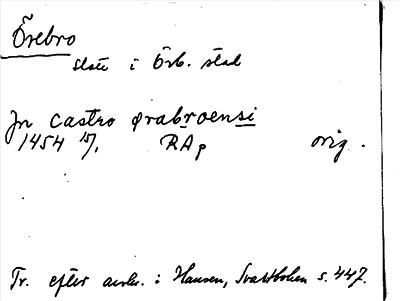 Örebro
slott i Örb. stad
Jn castro ørabroensi
1454 15/7. RAp orig.
Tr. efter avskr. i Hansen, Svartboken s. 447.